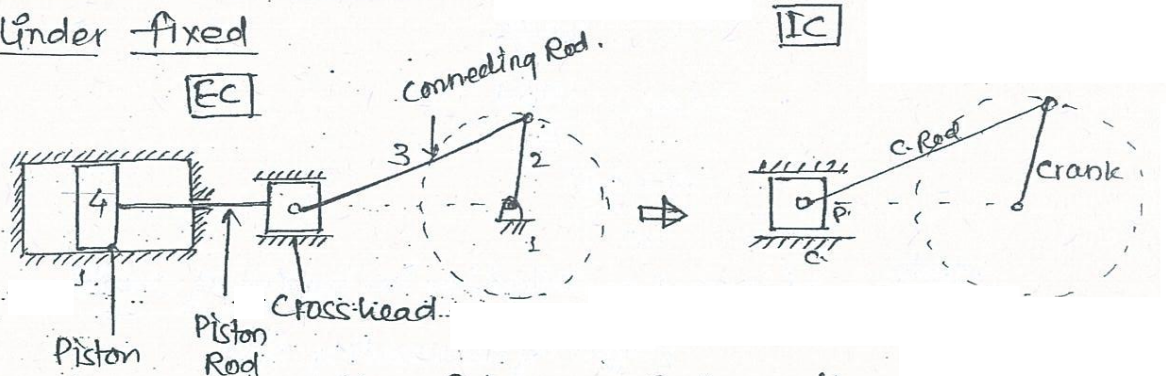 Linder fixed
EC
IC
Connecting Rod.
3
2
4
1
1
Piston
Piston
Rod
Cross-head.
C. Rod
Crank
P.
C.